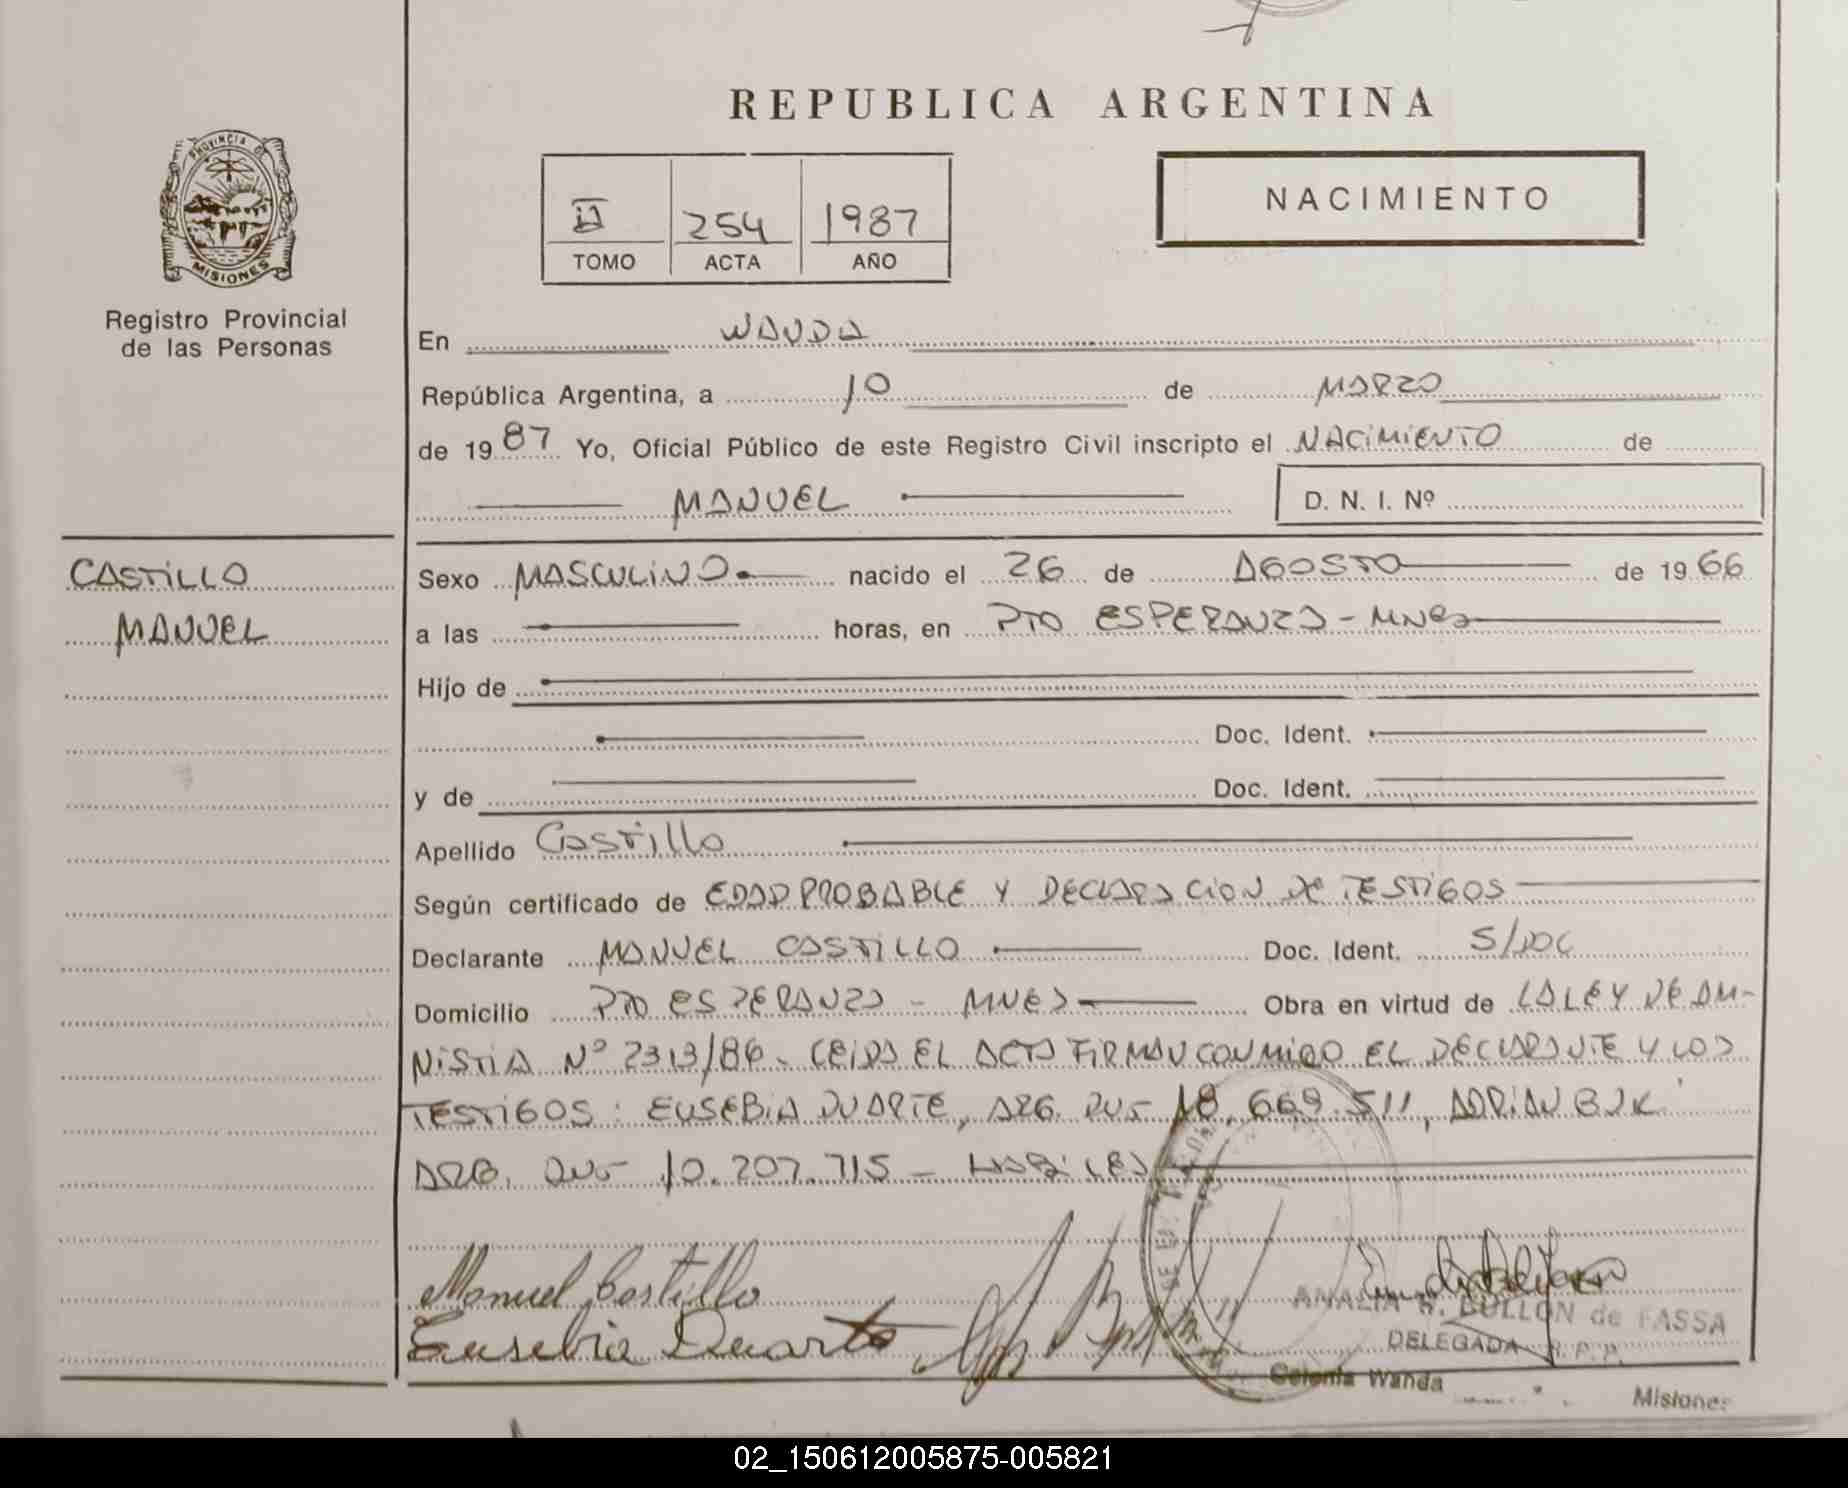 REPUBLICA ARGENTINA
PROVINCIA DE
MISIONES
Registro Provincial
de las Personas
II 254 1987
TOMO ACTA AÑO
NACIMIENTO
En WANDA
República Argentina, a 10 de MARZO
de 1987 Yo, Oficial Público de este Registro Civil inscripto el NACIMIENTO de
MANUEL D. N. I. Nº
CASTILLO
MANUEL
Sexo MASCULINO nacido el 26 de AGOSTO de 1966
a las horas, en PTO ESPERANZA - MNES
Hijo de
Doc. Ident.
y de Doc. Ident.
Apellido Castillo
Según certificado de EDAD PROBABLE Y DECLARACION DE TESTIGOS
Declarante MANUEL CASTILLO Doc. Ident. S/DOC
Domicilio PTO ESPERANZA - MNES Obra en virtud de LA LEY DE AM-
NISTIA Nº 2313/86 - LEIDA EL ACTA FIRMAN CONMIGO EL DECLARANTE Y LOS
TESTIGOS: EUSEBIA DUARTE, ARG. DNI 18.669.511, ADRIAN BJK
ARG. DNI 10.207.715 - HABILES
Manuel Castillo
Eusebia Duarte
AMALIA R. BULLON de FASSA
DELEGADA R.P.P.
Colonia Wanda Misiones
02_150612005875-005821